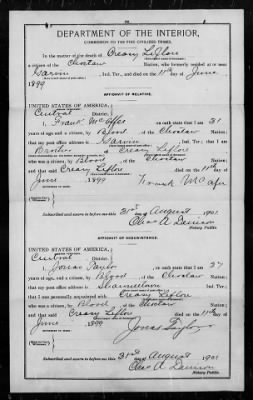 DEPARTMENT OF THE INTERIOR,
COMMISSION TO THE FIVE CIVILIZED TRIBES.
In the matter of the death of Creasy Leflore
a citizen of the Choctaw Nation, who formerly resided at or near
Garvin, Ind. Ter., and died on the 11th day of June
1899
AFFIDAVIT OF RELATIVE.
UNITED STATES OF AMERICA,
Central
I, Frank on oath state that I am 31
years of age and a citizen, by Blood of the Choctaw Nation;
that my post office address is Garvin, Ind. Ter.; that I am
Leflore
who was a citizen, by Blood of the Choctaw Nation;
and that said Creasy Leflore died on the 11th day of
June, 1899
Frank
Subscribed and sworn to before me this 31st day of August 1901
Davison
Notary Public.
AFFIDAVIT OF ACQUAINTANCE.
UNITED STATES OF AMERICA,
Central
I, Jonas Taylor, on oath state that I am 27
years of age, and a citizen by Blood of the Choctaw Nation;
that my post office address is, Ind. Ter.;
that I was personally acquainted with Creasy Leflore
who was a citizen, by Blood of the Choctaw Nation;
and that said Creasy Leflore died on the 11th day of
June, 1899
Jonas Taylor
Subscribed and sworn to before me this 31st day of August 1901
Davison
Notary Public.